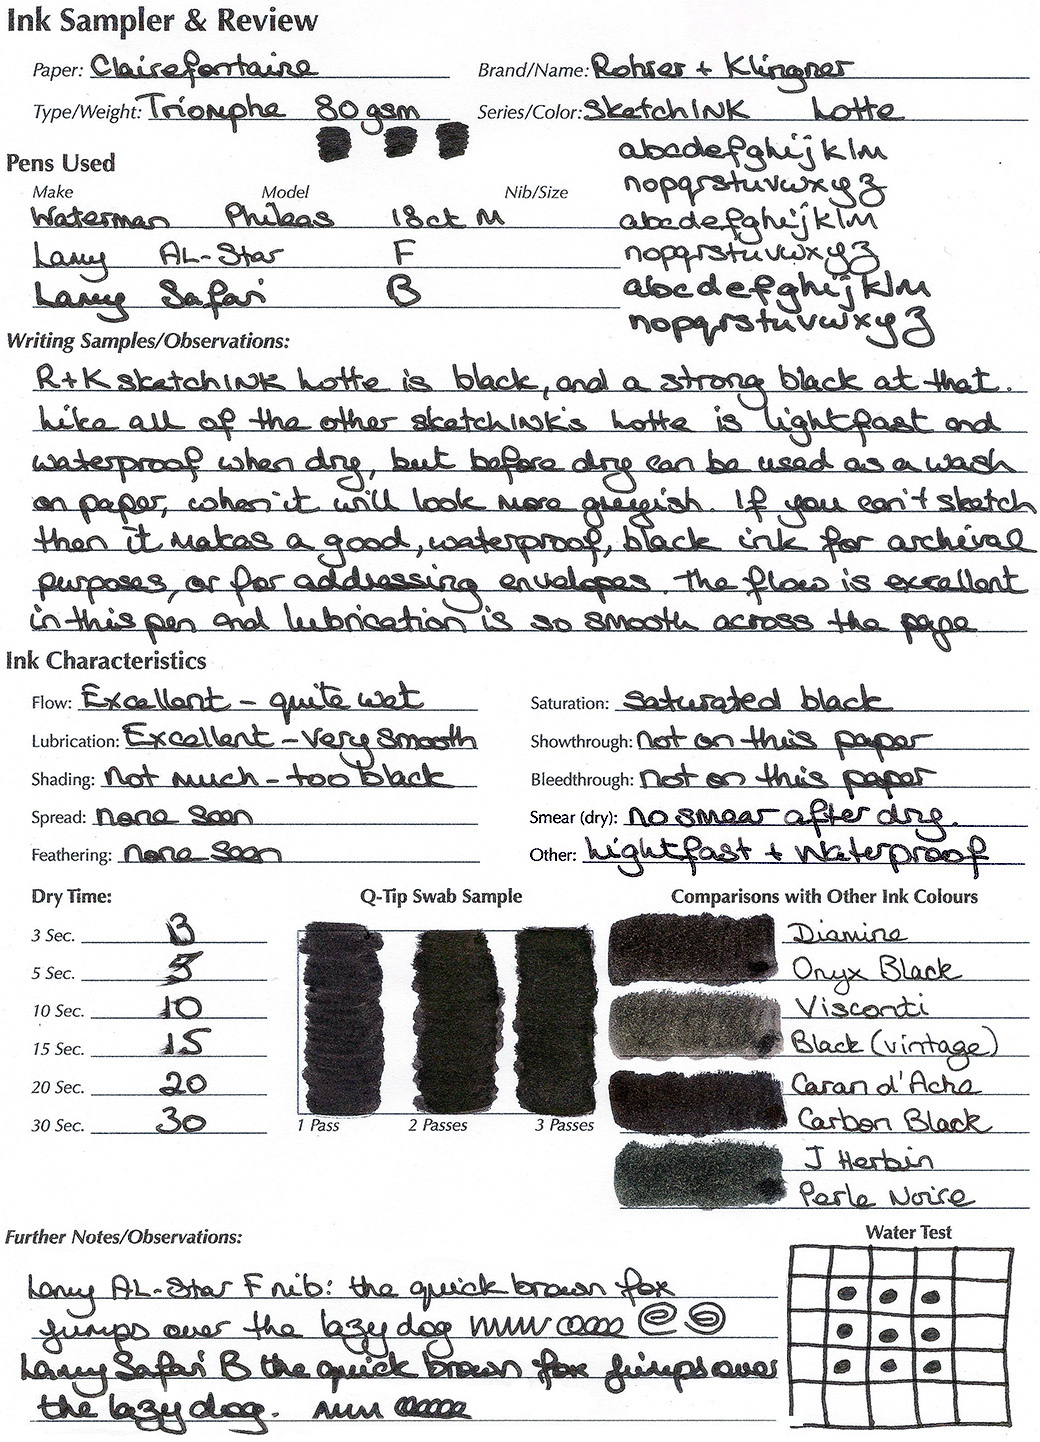 Ink Sampler & Review
Paper: Clairefontaine Brand/Name: Rohrer + Klingner
Type/Weight: Triomphe 80gsm Series/Color: SketchINK Lotte
abcdefghijklm
nopqrstuvwxyz
abcdefghijklm
nopqrstuvwxyz
abcdefghijklm
nopqrstuvwxyz
Pens Used
Make Model Nib/Size
Waterman Phileas 18ct M
Lamy AL-Star F
Lamy Safari B
Writing Samples/Observations:
R+K sketchINK Lotte is black, and a strong black at that.
Like all of the other sketchINK's Lotte is lightfast and
waterproof when dry, but before dry can be used as a wash
on paper, when it will look more greyish. If you can't sketch
then it makes a good, waterproof, black ink for archival
purposes, or for addressing envelopes. The flow is excellent
in this pen and lubrication is so smooth across the page
Ink Characteristics
Flow: Excellent - quite wet Saturation: saturated black
Lubrication: Excellent - very smooth Showthrough: not on this paper
Shading: not much - too black Bleedthrough: not on this paper
Spread: none seen Smear (dry): no smear after dry.
Feathering: none seen Other: Lightfast + Waterproof
Dry Time: Q-Tip Swab Sample Comparisons with Other Ink Colours
3 Sec. 3
5 Sec. 5
10 Sec. 10
15 Sec. 15
20 Sec. 20
30 Sec. 30
1 Pass 2 Passes 3 Passes
Diamine
Onyx Black
Visconti
Black (vintage)
Caran d'Ache
Carbon Black
J Herbin
Perle Noire
Further Notes/Observations: Water Test
Lamy AL-Star F nib: the quick brown fox
jumps over the lazy dog
Lamy Safari B the quick brown fox jumps over
the lazy dog.